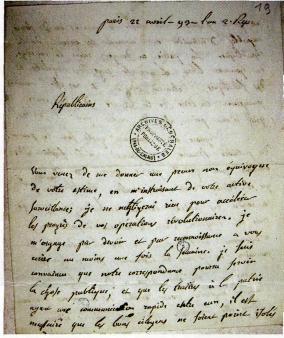 19
paris 22 avril - 93 - l'an 2 - Repu
Républicains
Vous venez de me donner une preuve non équivoque
de votre estime, en m'instruisant de votre active
surveillance; je ne negligerai rien pour accélérer
les progrès de vos opérations révolutionnaires. je
m'engage par devoir et par reconnaissance a vous
écrire au moins une fois la semaine. je suis
convaincu que notre correspondance pourra servir
la chose publique, et que les traitres à la patrie
ayant une communication rapide entre eux, il est
nécessaire que les bons citoyens ne soient point isolés